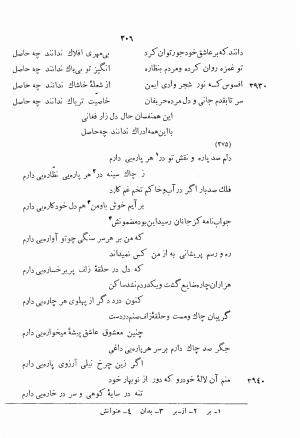 ۳۰۶
دانند که بر عاشق خود جور توان کرد
بی‌مهری افلاک ندانند چه حاصل
تو غمزه روان کرده و مردم بنظاره
انگیز تو بی‌باک ندانند چه حاصل
۳۹۳۰
افسوس که نور شجر وادی ایمن
از شعلهٔ خاشاک ندانند چه حاصل
سر تا بقدم جانی و دل مرده حریفان
خاصیت تریاک ندانند چه حاصل
این همنفسان حال دل زار فغانی
با این همه ادراک ندانند چه حاصل
(۳۷۵)
دلم صد پاره و نقش تو در۱ هر پاره‌یی دارم
ز چاک سینه در۲ هر پاره‌یی نظّاره‌یی دارم
فلک صد بار اگر در آب و خاکم تخم غم کارد
بر آیم خوش باو من۳ هم دل خود کاره‌یی دارم
جواب نامه کز جانان رسید این بود مضمونش۴
که من بر هر سر سنگی چو تو آواره‌یی دارم
ره و رسم پریشانی به از من کس نمیداند
که دل در حلقهٔ زلف پریرخساره‌یی دارم
هزاران چاره ضایع گشت و یکدردم نشد ساکن
کنون درد دگر از پهلوی هر چاره‌یی دارم
گریبان چاک و مست و حلقهٔ زلف صنم در دست
چنین معشوق عاشق پیشهٔ میخواره‌یی دارم
جگر صد چاک و مرهم بر سر هر پاره داغی
اگر زین چرخ نیلی آرزوی پاره‌یی دارم
۳۹۴۰
منم آن لالهٔ خودرو که دور از نوبهار خود
تنه در سایهٔ کوهی و سر در خاره‌یی دارم
۱- بر ۲- از، بر ۳- بدان ۴- عنوانش